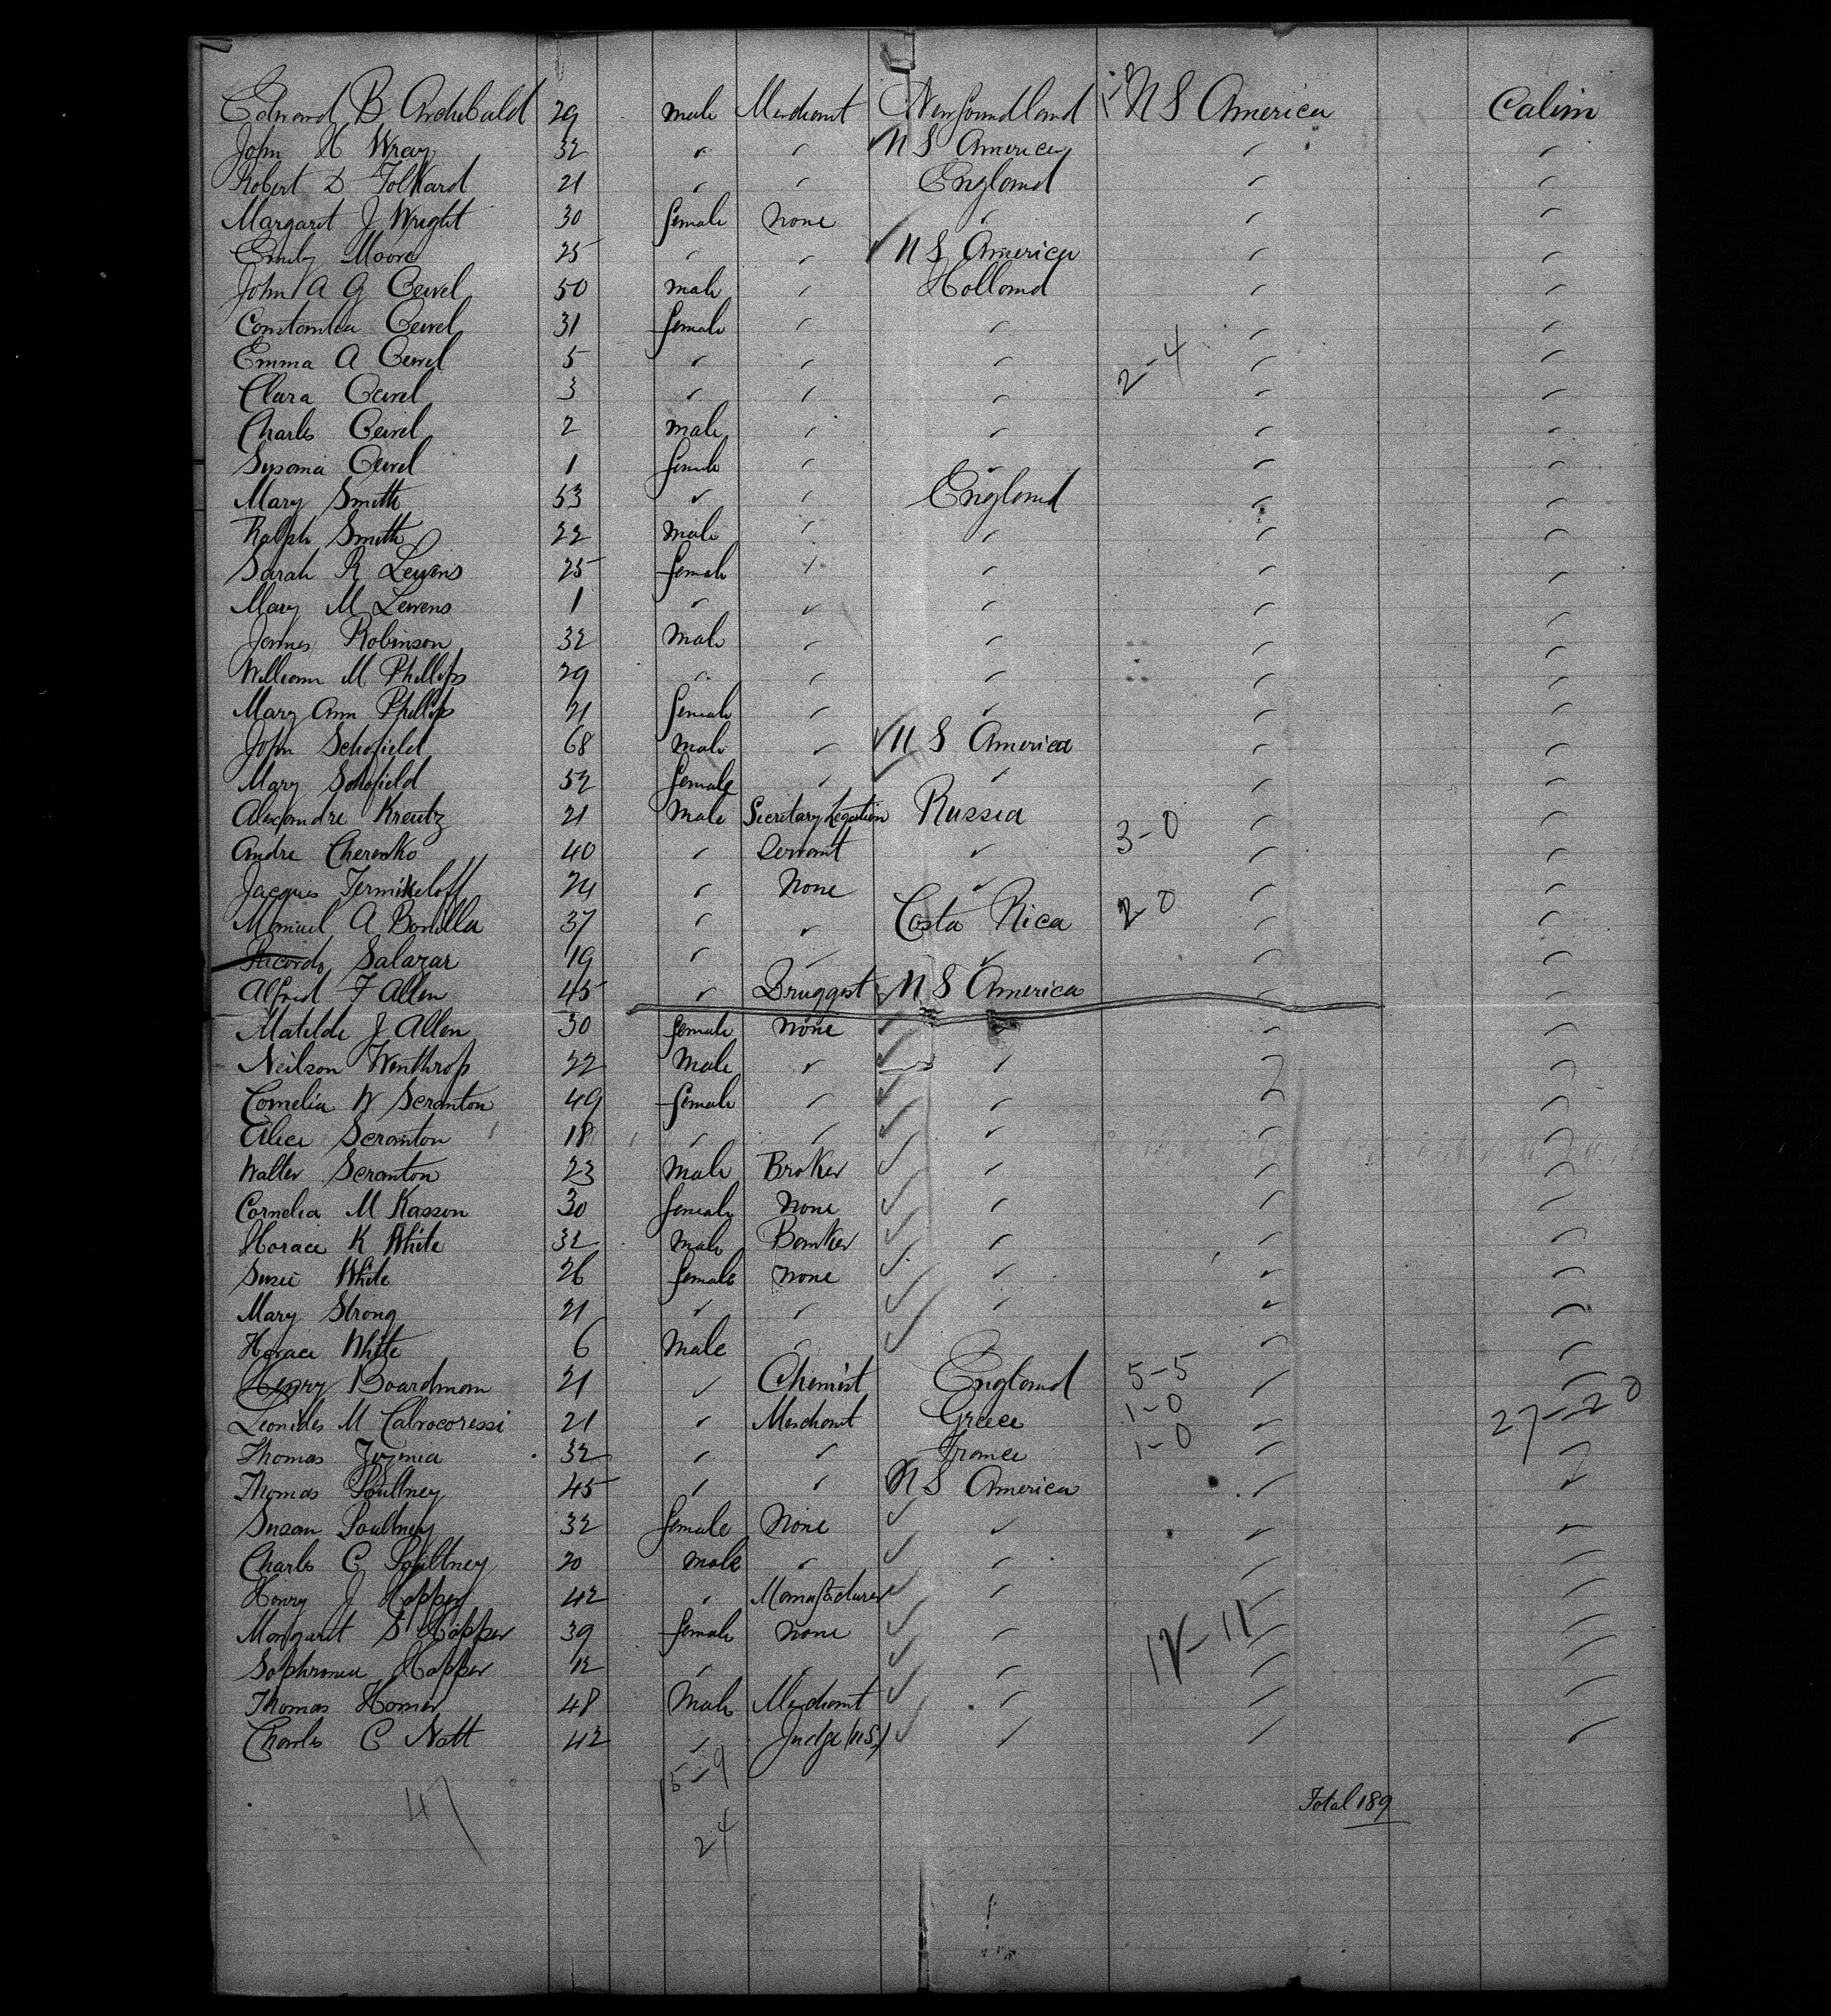 Edward B Archibald 29 male Merchant Newfoundland U S America Cabin
John H Wray 32 " " U S America " "
Robert D Folkard 21 " " England " "
Margaret J Wright 30 female none " " "
Emily Moore 25 " " U S America " "
John A G 50 male " Holland " "
31 female " " " "
Emma A 5 " " " 2-4 " "
Clara 3 " " " " "
Charles 2 male " " " "
1 female " " " "
Mary Smith 53 " " England " "
Ralph Smith 22 male " " " "
Sarah R Lewens 25 female " " " "
Mary M Lewens 1 " " " " "
James Robinson 32 male " " " "
William M Phillips 29 " " " " "
Mary Ann Phillips 21 female " " " "
John Schofield 68 male " U S America " "
Mary Schofield 52 female " " " "
Alexandre Kreutz 21 male Secretary Legation Russia " "
Andre Cherenko 40 " Servant " 3-0 " "
Jacques 24 " None " " "
Manuel A Bonilla 37 " " Costa Rica 2 0 " "
Ricardo Salazar 19 " " " " "
Alfred F Allen 45 " Druggest U S America " "
Matilde J Allen 30 female none " " "
Neilson Winthrop 22 male " " " "
Cornelia W Scranton 49 female " " " "
Alice Scranton 18 " " " " "
Walter Scranton 23 male Broker " " "
Cornelia M Kasson 30 female none " " "
Horace K White 32 male Banker " " "
Susie White 26 female none " " "
Mary Strong 21 " " " " "
Horace White 6 male " " " "
Henry Boardman 21 " Chemist England 5-5 " "
Leonides M Calvocoressi 21 " Merchant Greece 1-0 " 27-20
Thomas 32 " " France 1-0 " "
Thomas Poultney 45 " " U S America " "
Susan Poultney 32 female None " " "
Charles C Poultney 20 male " " " "
Henry J Hopper 42 " Manufacturer " " "
Margaret S Hopper 39 female none " 12-11 " "
Sophronia Hopper 12 " " " " "
Thomas Homer 48 male Merchant " " "
Charles C Nott 42 " Judge (US) " " "
47 15-9 Total 189
24